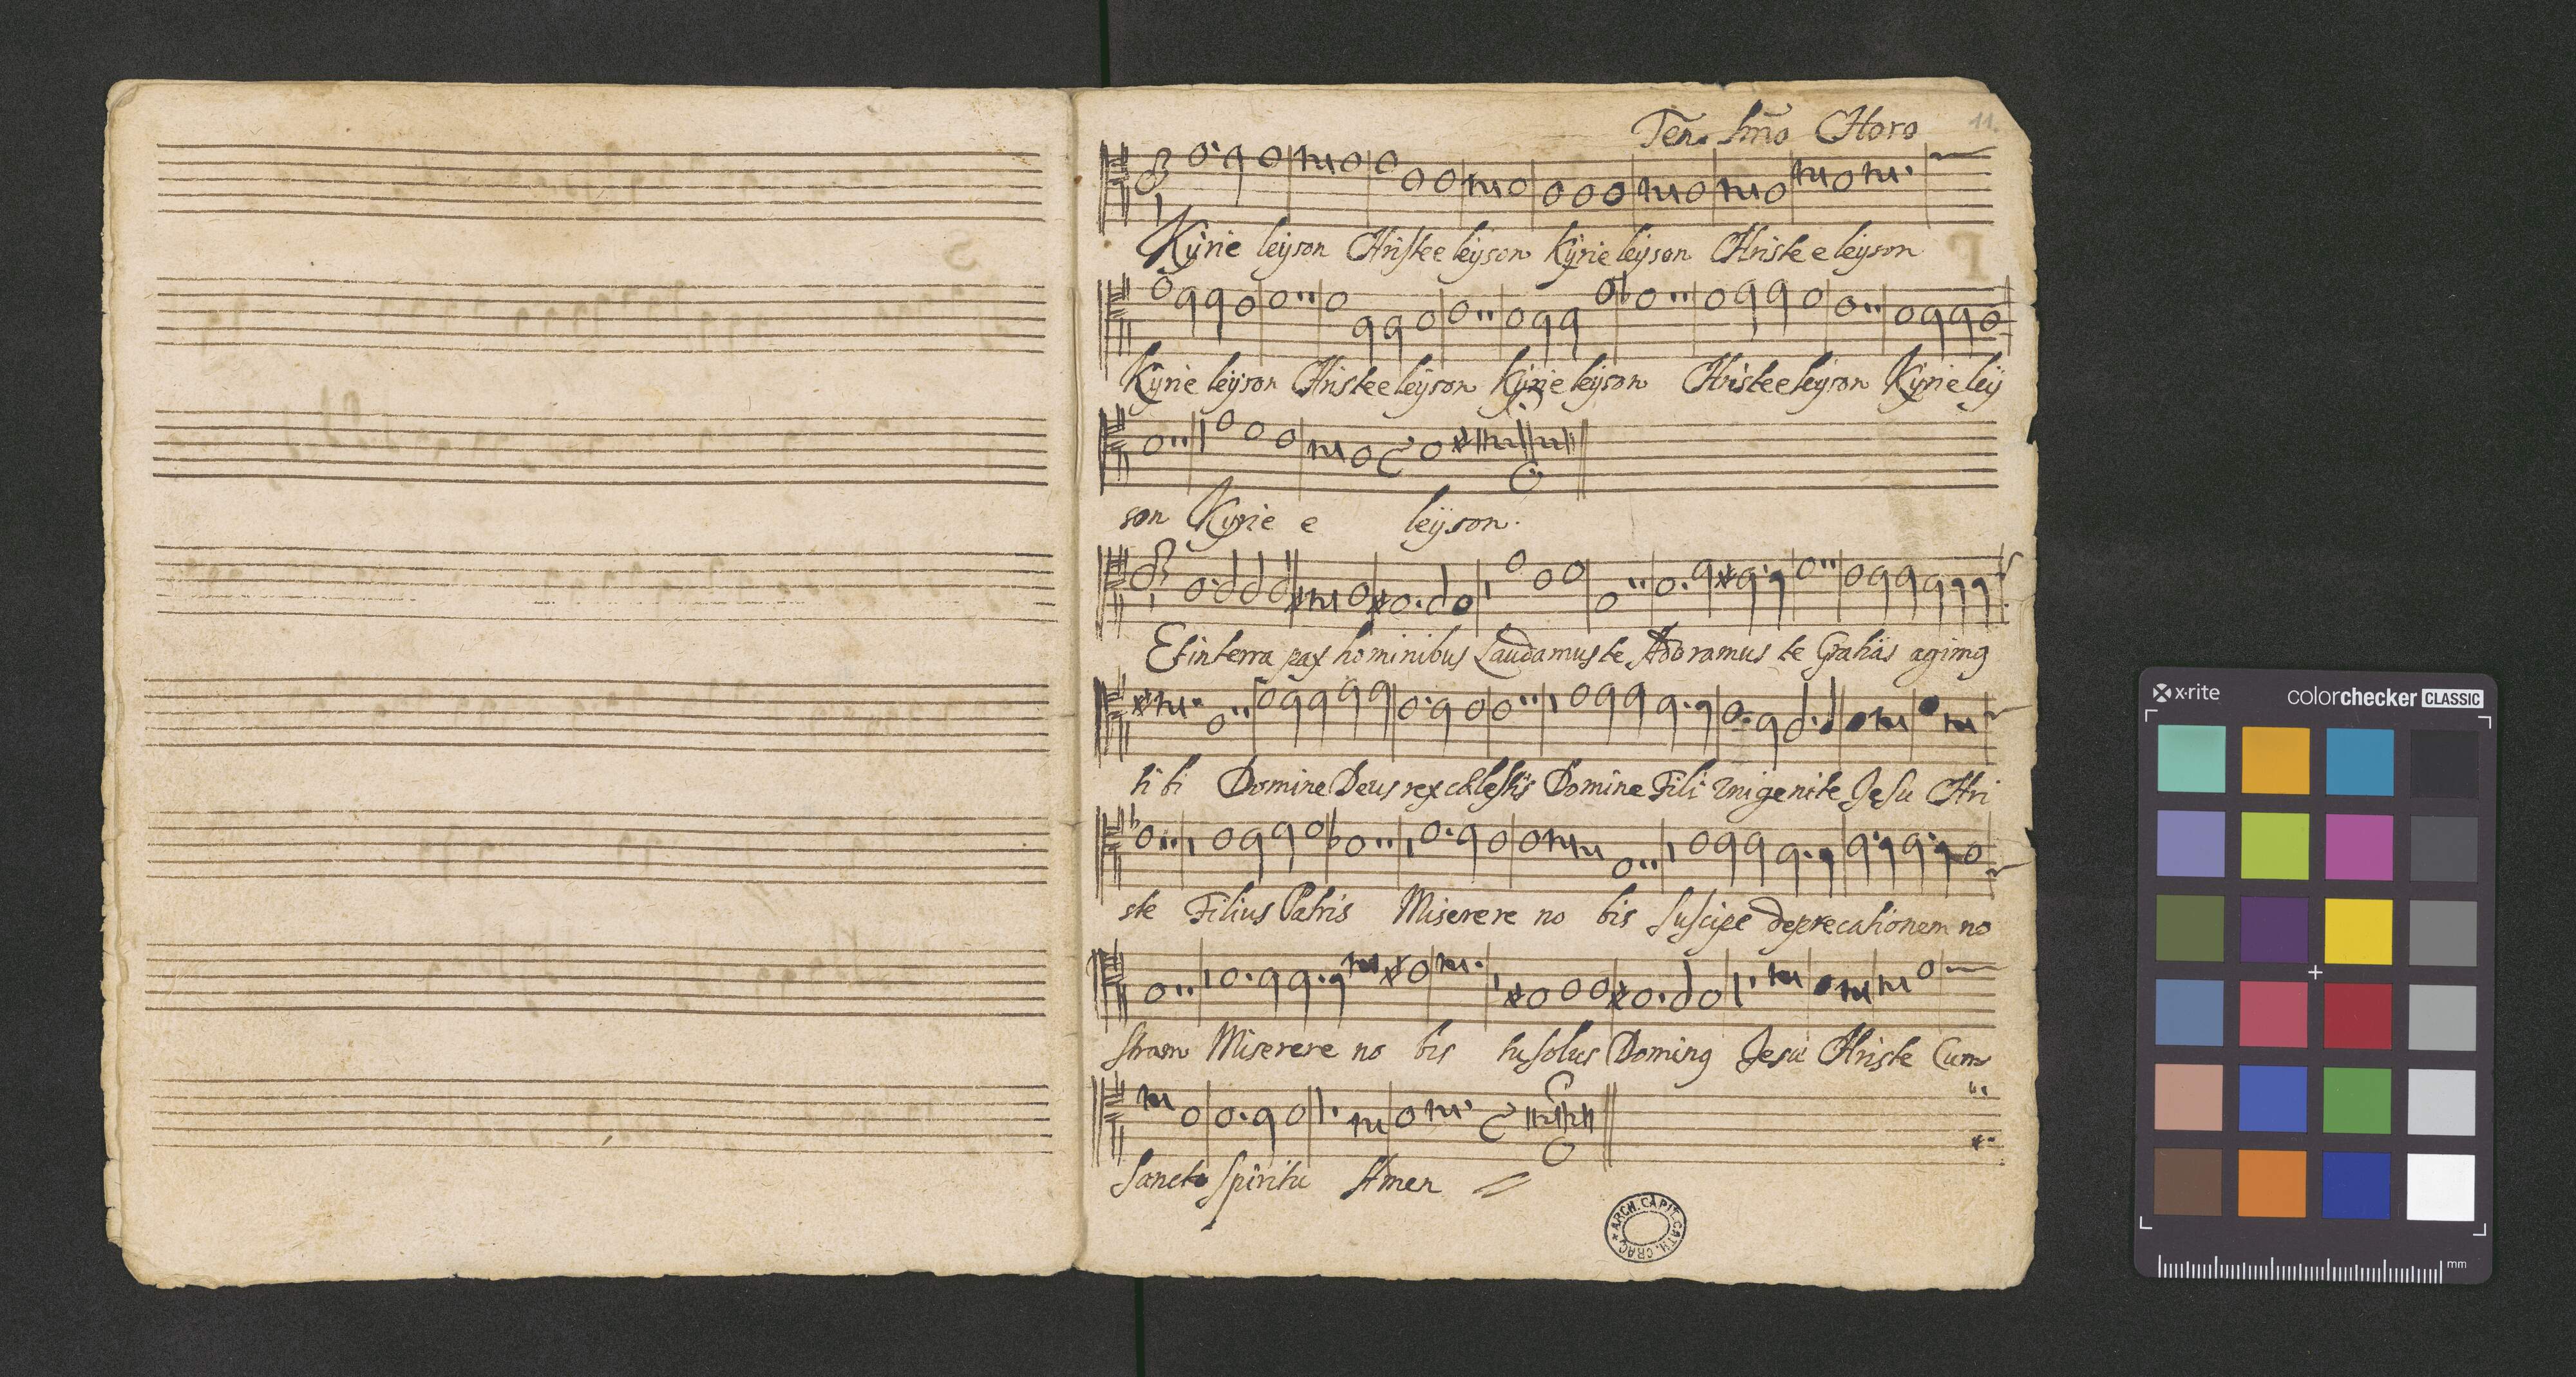 Ten. Imo Choro
11.
Kyrie leyson Christe eleyson Kyrie leyson Christe eleyson
Kyrie leyson Christe eleyson Kyrie leyson Christe eleyson Kyrie ley
son Kyrie e leyson.
Et in terra pax hominibus Laudamus te Adoramus te Gratias agimg
tibi Domine Deus rex cælestis Domine Fili Unigenite Jesu Chri
ste Filius Patris Miserere no bis suscipe deprecationem no
stram Miserere no bis tu solus Doming Jesu Christe Cum
Sancto Spiritu Amen
ARCH. CAPIT. CATH. CRAC.
x-rite
colorchecker CLASSIC
mm